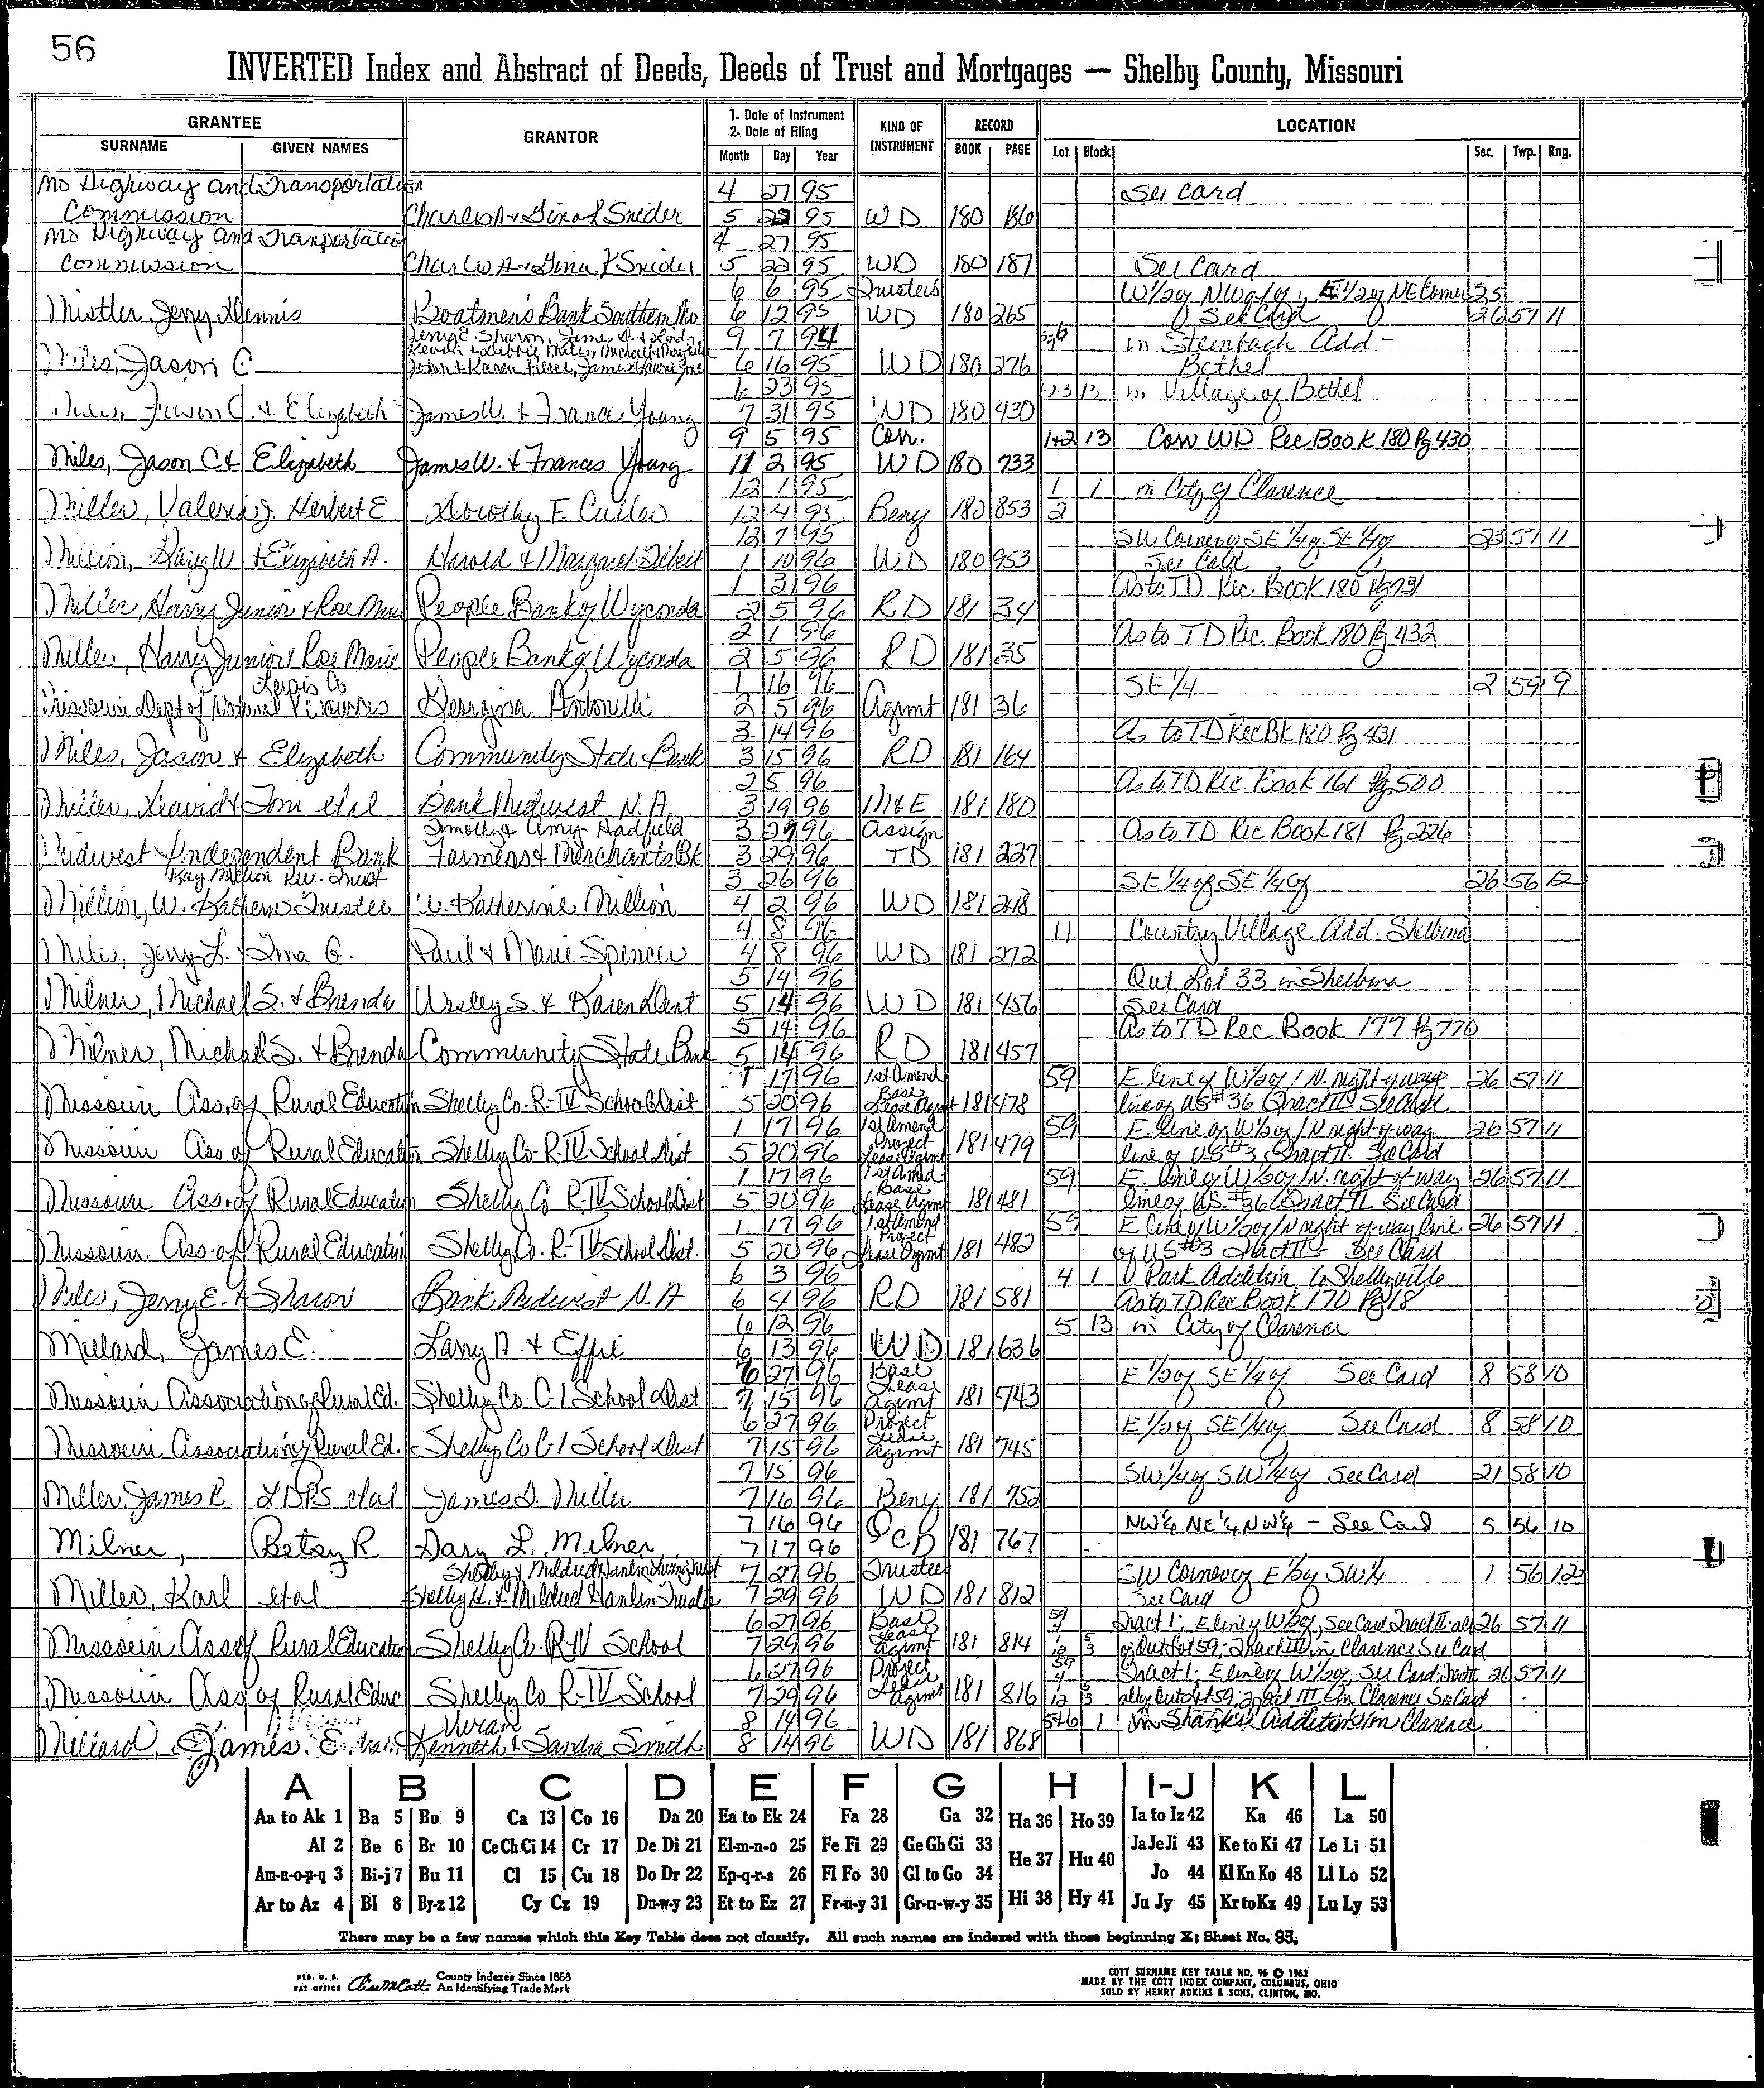 56
INVERTED Index and Abstract of Deeds, Deeds of Trust and Mortgages — Shelby County, Missouri
GRANTEE GRANTOR 1. Date of Instrument 2. Date of Filing KIND OF INSTRUMENT RECORD LOCATION
SURNAME GIVEN NAMES Month Day Year BOOK PAGE Lot Block Sec. Twp. Rng.
Mo Highway and Transportation 4 27 95 See Card
Commission Charles A & Gina K Snider 5 95 WD 180 186
Mo Highway and Tranportation 4 27 95
Commission Charles A & Gina K Snider 5 23 95 WD 180 187 See Card
6 6 95 Trustee's W 1/2 of NW 1/4 of, E 1/2 of NE Corner 25
Mistler, Jerry Dennis Boatmen's Bank Southern Mo 6 12 95 WD 180 265 See Card 26 57 11
9 7 94 in Steinbach Add -
Miles, Jason C 6 16 95 WD 180 276 Bethel
6 23 95 1 2 3 13 in Village of Bethel
Miles, Jason C. & Elizabeth James W. & Frances Young 7 31 95 WD 180 430
9 5 95 Corr. 1+2 13 Corr WD Rec Book 180 Pg 430
Miles, Jason C & Elizabeth James W. & Frances Young 11 2 95 WD 180 733
12 1 95 1 1 in City of Clarence
Miller, Valerie Herbert E Dorothy F. 12 4 95 Beny 180 853 2
12 7 95 SW Corner of SE 1/4 of SE 1/4 of 23 57 11
Million, Gary W & Elizabeth A. Harold & Margaret 1 10 96 WD 180 953 See Card
1 31 96 As to TD Rec. Book 180 Pg 731
Miller, Harry Junior & Rose Marie People Bank of Wyconda 2 5 96 RD 181 34
2 1 96 As to TD Rec Book 180 Pg 432
Miller, Harry Junior & Rose Marie People Bank of Wyconda 2 5 96 RD 181 35
Lewis Co 1 16 96 SE 1/4 2 59 9
Missouri Dept of Natural Resources Georgina Antonelli 2 5 96 Agrmt 181 36
3 14 96 As to TD Rec Bk 180 Pg 431
Miles, Jason & Elizabeth Community State Bank 3 15 96 RD 181 164
2 5 96 As to TD Rec Book 161 Pg 500
Miller, David & Toni etal Bank Midwest N.A. 3 19 96 M&E 181 180
Timothy & Amy Hadfield 3 29 96 Assign As to TD Rec Book 181 Pg 226
Midwest Independent Bank Farmers & Merchants Bk 3 29 96 TD 181 227
Ray Million Rev. Trust 3 26 96 SE 1/4 of SE 1/4 of 26 56 12
Million, W. Kathern Trustee W. Katherine Million 4 2 96 WD 181 248
4 8 96 11 Country Village Add. Shelbina
Miles, Jerry L. & Tina G. Paul & Marie Spencer 4 8 96 WD 181 272
5 14 96 Out Lot 33 in Shelbina
Milner, Michael S. & Brenda Wesley S. & Karen Dent 5 14 96 WD 181 456 See Card
5 14 96 As to TD Rec Book 177 Pg 770
Milner, Michael S. & Brenda Community State Bank 5 14 96 RD 181 457
1 17 96 1st Amend 59 E. line of W 1/2 of / N. right of way 26 57 11
Missouri Ass. of Rural Education Shelby Co. R-IV School Dist 5 20 96 Base Lease Agmt 181 478 line of US #36 Tract II See Card
1 17 96 1st Amend 59 E. line of W 1/2 of / N right of way 26 57 11
Missouri Ass. of Rural Education Shelby Co. R-IV School Dist 5 20 96 Project Lease Agmt 181 479 line of US #3 Tract II See Card
1 17 96 1st Amed 59 E. line of W 1/2 of / N. right of way 26 57 11
Missouri Ass. of Rural Education Shelby Co R-IV School Dist 5 20 96 Base Lease Agmt 181 481 line of US. #36 Tract II See Card
1 17 96 1st Amend 59 E. line of W 1/2 of / N right of way line 26 57 11
Missouri Ass. of Rural Education Shelby Co. R-IV School Dist. 5 20 96 Project Lease Agmt 181 482 of US #3 Tract II See Card
6 3 96 4 1 Park Addition to Shelbyville
Miles, Jerry E. & Sharon Bank Midwest N.A 6 4 96 RD 181 581 As to TD Rec Book 170 Pg 18
6 12 96 5 13 in City of Clarence
Millard, James E. Larry D. & Effie 6 13 96 WD 181 636
6 27 96 Base E 1/2 of SE 1/4 of See Card 8 58 10
Missouri Association of Rural Ed. Shelby Co C-1 School Dist 7 15 96 Lease Agmt 181 743
6 27 96 Project E 1/2 of SE 1/4 of See Card 8 58 10
Missouri Association of Rural Ed. Shelby Co C-1 School Dist 7 15 96 Lease Agrmt 181 745
7 15 96 SW 1/4 of SW 1/4 of See Card 21 58 10
Miller, James R etal James D. Miller 7 16 96 Beny 181 752
7 16 96 NW¼ NE¼ NW¼ - See Card 5 56 10
Milner, Betsy R Dary L. Milner 7 17 96 QCD 181 767
Shelby & Mildred Hanlin Living Trust 7 27 96 Trustee SW Corner of E 1/2 of SW¼ 1 56 12
Miller, Karl etal Shelby H. & Mildred Hanlin Trustee 7 29 96 WD 181 812 See Card
6 27 96 Base 59 Tract 1: E line of W 1/2 of, See Card Tract II: all 26 57 11
Missouri Ass of Rural Education Shelby Co. R-IV School 7 29 96 Lease Agmt 181 814 of Out Lot 59; Tract III in Clarence See Card
6 27 96 Project 59 Tract 1: E line of W 1/2 of, See Card, Tract II 26 57 11
Missouri Ass of Rural Educ Shelby Co R-IV School 7 29 96 Lease Agmt 181 816 all of Out Lot 59; Tract III in Clarence See Card
Vivian 8 14 96 5+6 1 in Shanks Addition in Clarence
Millard, James E. Kenneth & Sandra Smith 8 14 96 WD 181 868
A B C D E F G H I-J K L
Aa to Ak 1 Ba 5 Bo 9 Ca 13 Co 16 Da 20 Ea to Ek 24 Fa 28 Ga 32 Ha 36 Ho 39 Ia to Iz 42 Ka 46 La 50
Al 2 Be 6 Br 10 Ce Ch Ci 14 Cr 17 De Di 21 El-m-n-o 25 Fe Fi 29 Ge Gh Gi 33 He 37 Hu 40 Ja Je Ji 43 Ke to Ki 47 Le Li 51
Am-n-o-p-q 3 Bi-j 7 Bu 11 Cl 15 Cu 18 Do Dr 22 Ep-q-r-s 26 Fl Fo 30 Gl to Go 34 Jo 44 Kl Kn Ko 48 Ll Lo 52
Ar to Az 4 Bl 8 By-z 12 Cy Cz 19 Du-w-y 23 Et to Ez 27 Fr-u-y 31 Gr-u-w-y 35 Hi 38 Hy 41 Ju Jy 45 Kr to Kz 49 Lu Ly 53
There may be a few names which this Key Table does not classify. All such names are indexed with those beginning X; Sheet No. 95.
REG. U. S. PAT OFFICE County Indexes Since 1888 An Identifying Trade Mark
COTT SURNAME KEY TABLE NO. 96 © 1962
MADE BY THE COTT INDEX COMPANY, COLUMBUS, OHIO
SOLD BY HENRY ADKINS & SONS, CLINTON, MO.